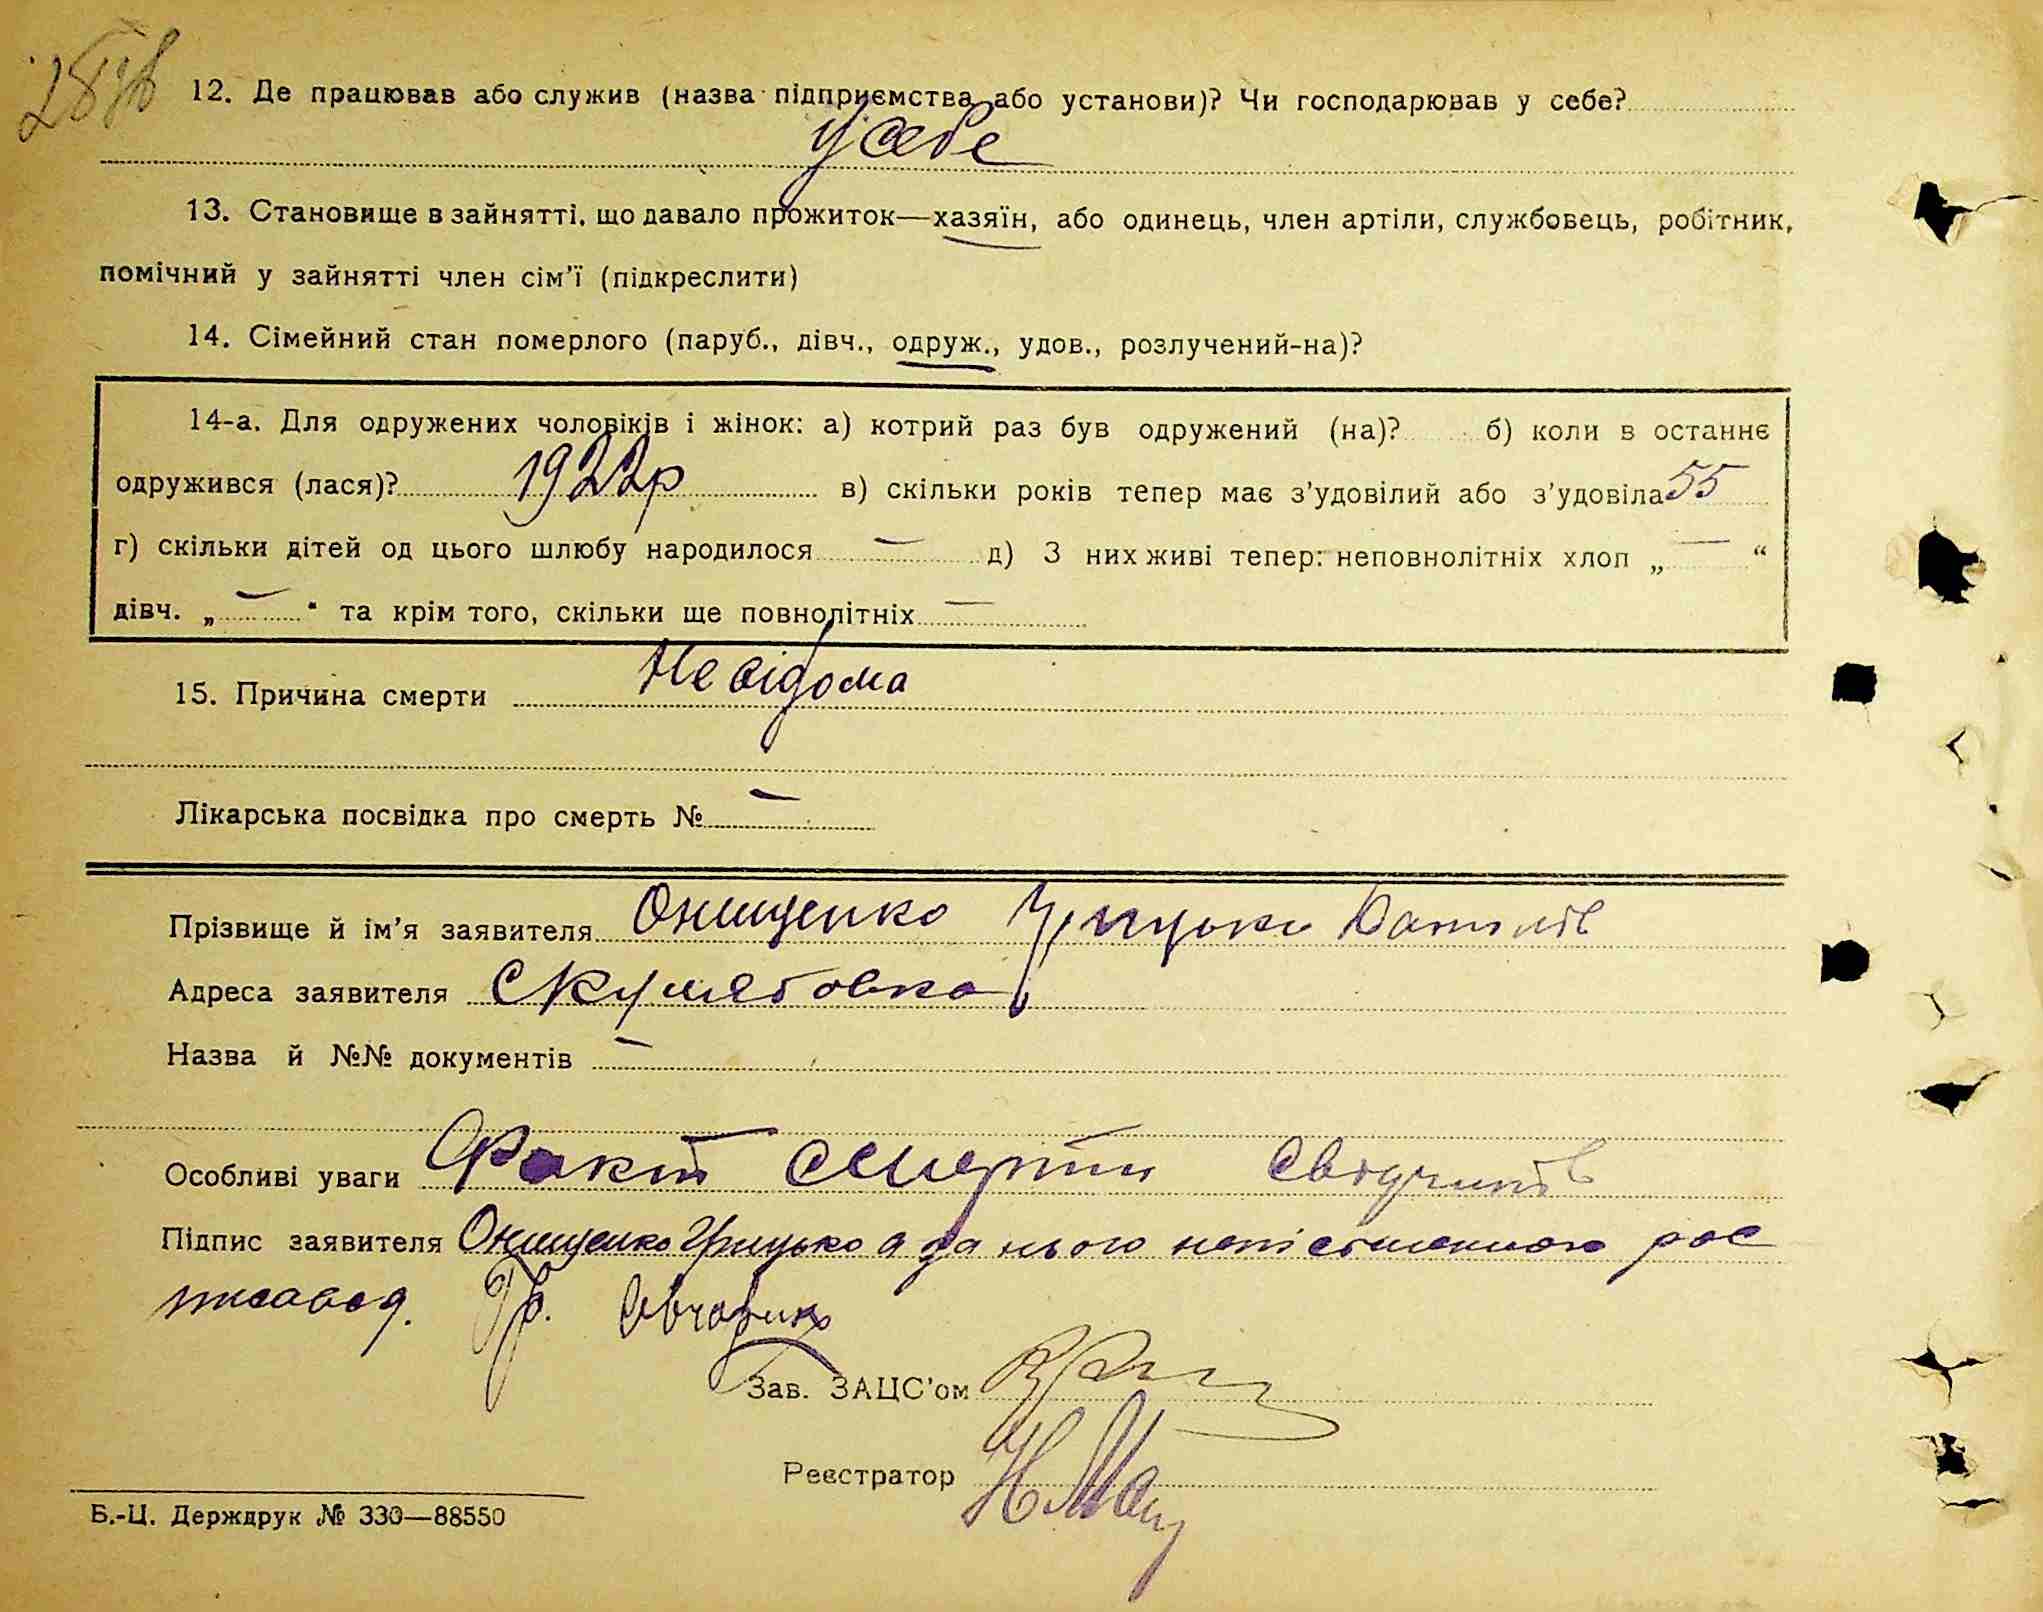 12. Де працював або служив (назва підприємства або установи)? Чи господарював у себе?
У себе
13. Становище в зайнятті, що давало прожиток—хазяїн, або одинець, член артіли, службовець, робітник,
помічний у зайнятті член сім'ї (підкреслити)
14. Сімейний стан померлого (паруб., дівч., одруж., удов., розлучений-на)?
14-а. Для одружених чоловіків і жінок: а) котрий раз був одружений (на)? б) коли в останнє
одружився (лася)? 1922р в) скільки років тепер має з'удовілий або з'удовіла 55
г) скільки дітей од цього шлюбу народилося — д) З них живі тепер: неповнолітніх хлоп „ — “
дівч. „ — “ та крім того, скільки ще повнолітніх —
15. Причина смерти Невідома
Лікарська посвідка про смерть № —
Прізвище й ім'я заявителя Онищенко Грицько
Адреса заявителя
Назва й №№ документів —
Особливі уваги Факт смерти
Підпис заявителя Онищенко Грицько а за нього неписьменного рос
писався. Гр.
Зав. ЗАЦС'ом
Реєстратор
Б.-Ц. Держдрук № 330—88550